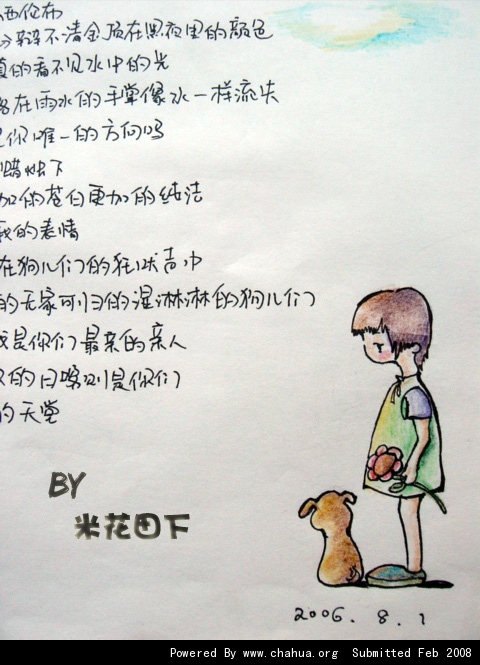 西伦布
分辩不清金质在黑夜里的颜色
真的看不见水中的光
在雨水的手掌像水一样流失
你唯一的方向吗
下
加的苍白更加的纯洁
我的表情
在狗儿们的狂吠声中
的无家可归的湿淋淋的狗儿们
我是你们最亲的亲人
的口袋则是你们
的天堂
BY
米花田下
2006. 8. 1
Powered By www.chahua.org Submitted Feb 2008